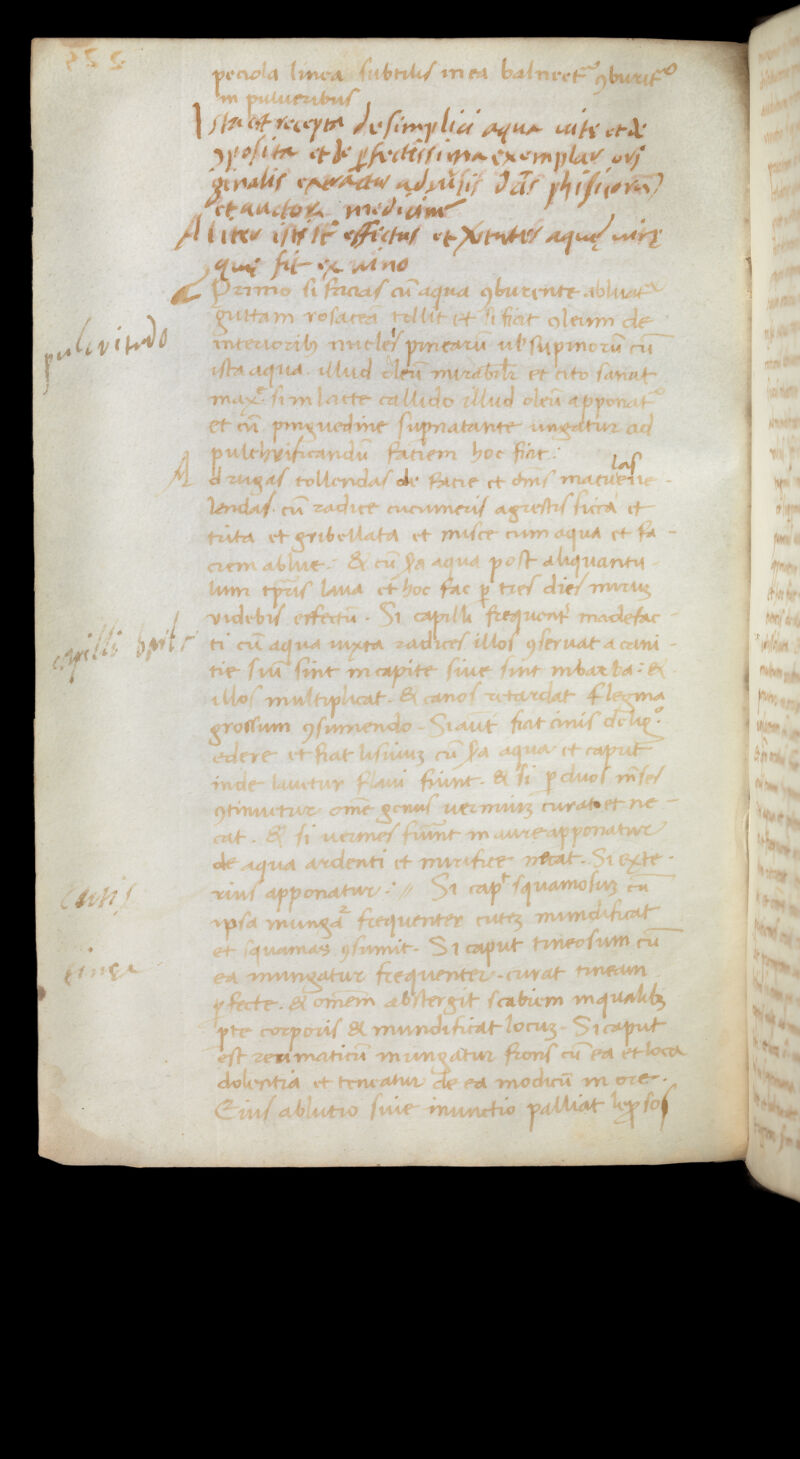 peciola linea subtilis in ea balneet᷑ ꝯburit᷑
in pulueribus
Ista est recepta de simplici aqua uite et de
ꝯposita et de ꝑfectissima exemplar ori
ginalis
et auctorꝝ medicine
Aliter isti st᷑ effectus et uirtutes aquę uitę
quę fit ex uino
Primo si facias cū aqua ꝯburente abluat᷑
guttam rosaceā tollit et si fiat oleum de
pulcritudo
interiorib nucleis pinearū ul supinorū cū
ista aqua. illud oleū mirabilr et cito sanat
max᷑ si in lacte callido illud oleū apponat᷑
et cū pinguedine supnatante ungatur ad
pulchrificandū faciem hoc fiat.
Ad rugas tollendas de facie et oms maculas
lendas. cū radice cucumeris agrestis sicca et
trita et gribellata et misce cum aqua et fa-
ciem ablue. & cū aqua post aliquantu-
lum tp̄ris laua et hoc fac ꝑ tres dies miruꝫ
videbis effectū. Si capilli frequent᷑ madefac-
capilli
ti cū aqua iuxta radices illos ꝯseruat a cani-
tie siue sint in capite siue sint in barba: &
illos multiplicat. & canos retardat flegma
grossum ꝯsumendo. Si aut fiat cinis
edere et fiat lisiuiuꝫ cū aqua et caput
inde lauetur flaui fiunt. & si ꝑ duos mses
ꝯtinuetur ome genus uermiuꝫ curat et ne-
cat. & si uermes fiunt in aure apponatur
de aqua ardenti et mirifice necat. Si exte-
rius apponatur: Si cap᷑ squamosuꝫ cū
cutis
ipsa inungat᷑ frequenter cuteꝫ mundificat
et squamas ꝯsumit. Si caput tineosum cū
tinea
ea inungatur frequenter. curat tineam
ꝑfecte. & omem abstergit scabiem in qualibꝫ
ꝑte corporis & mundificat locuꝫ. Si caput
est reumaticū inungatur frons cū ea et loca
dolentia et teneatur de ea modicū in ore.
Eius ablutio siue inunctio palliat leprosos